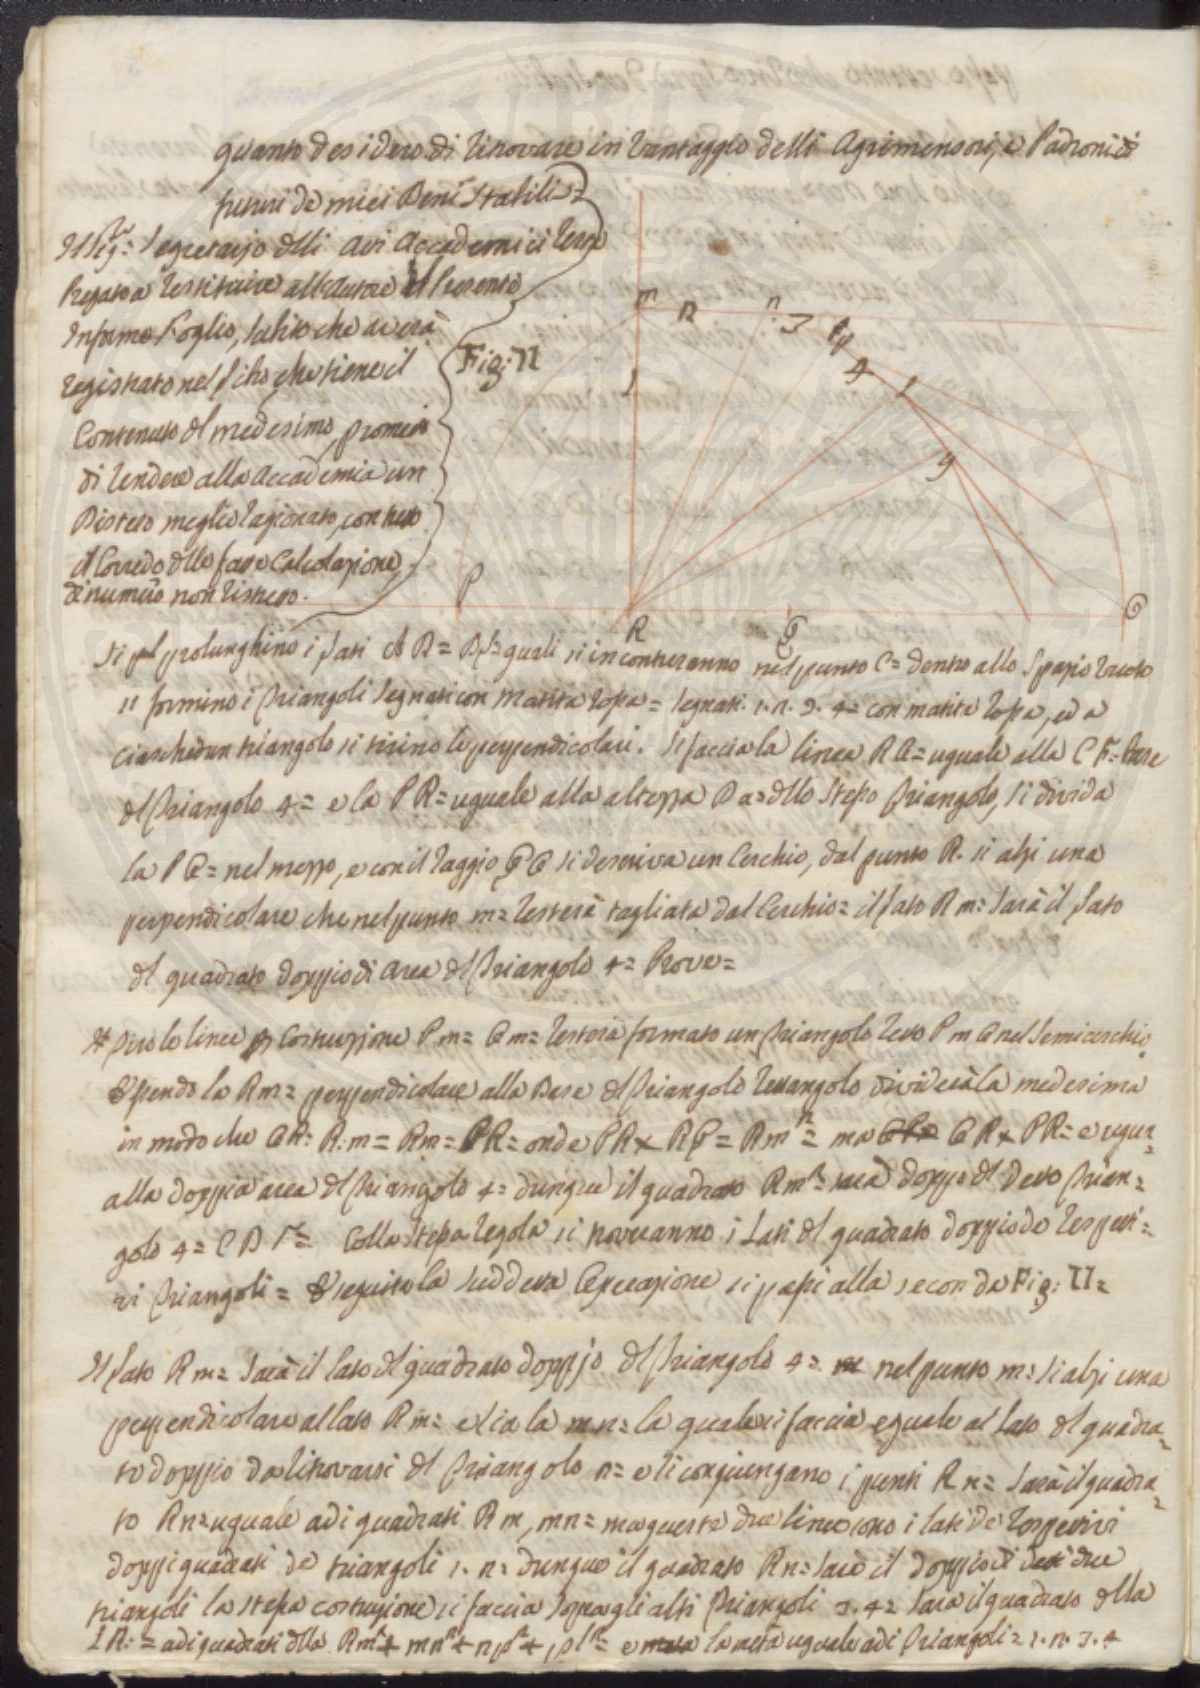 quanto desidero di ritrovare in vantaggio delli Agrimensori, e Padroni di
futuri de miei Beni Stabili =
Il Sig:r Segretario dlli Accademici resta
Pregato a restituire all'Autore il Presente
Informe Foglio, subito che averà
registrato nel sito, che tiene il
Contenuto dl medesimo, prometto
di rendere alla Accademia un
Disteso meglio ragionato, con tutto
il Corredo dlla Calcolazione
di numero non ristretto.
Fig: II
m 2 n 3 p 4 l q
1
P R G
Si prolunghino i lati A B = quali si incontreranno nel punto C = dentro allo Spazio Vuoto
si formino i Triangoli Segnati con Matita rossa = Segnati 1. 2. 3. 4 = con matita rossa, ed a
ciaschedun triangolo si tirino le perpendicolari. Si faccia la linea R = uguale alla C F = base
dl Triangolo 4 = e la P R = uguale alla altezza = dllo Stesso Triangolo, si divida
la = nel mezzo, e con il raggio si descriva un Cerchio, dal punto R. si alzi una
perpendicolare che nel punto m = resterà tagliata dal Cerchio = il lato R m = sarà il lato
dl quadrato doppio di area dl Triangolo 4 = Prove =
linee Costruzione P m = m = resterà formato un Triangolo P m nel Semicerchio
Essendo la R m = perpendicolare alla Base dl Triangolo rettangolo dividerà la medesima
in modo che R = R: m = Rm = PR = onde PR × = Rm = ma R × PR = e ugual
alla doppia area dl Triangolo 4 = dunque il quadrato Rm = sarà doppio dl detto Trian =
golo 4 = C B Colla Stessa regola si troveranno i Lati dl quadrato doppio de respetti =
vi Triangoli = Eseguito la suddetta Operazione si passi alla seconda Fig: II =
Il lato R m = Sarà il lato dl quadrato doppio dl Triangolo 4 = nel punto m = si alzi una
perpendicolare al lato R m = e sia la m n = la quale si faccia eguale al Lato dl quadra =
to doppio da ritrovarsi dl Triangolo = e si congiungano i punti R n = Sarà il quadra =
to Rn = uguale a di quadrati R m, mn = ma queste due linee sono i lati de respettivi
doppi quadrati de triangoli 1. 2 = dunque il quadrato Rn = sarà il doppio di detti due
triangoli la stessa costruzione si faccia sopra gli altri Triangoli 3. 4 = Sarà il quadrato dlla
R: = a di quadrati dlla Rm + mn + np + pl = e la metà uguale a di Triangoli = 1. 2. 3. 4